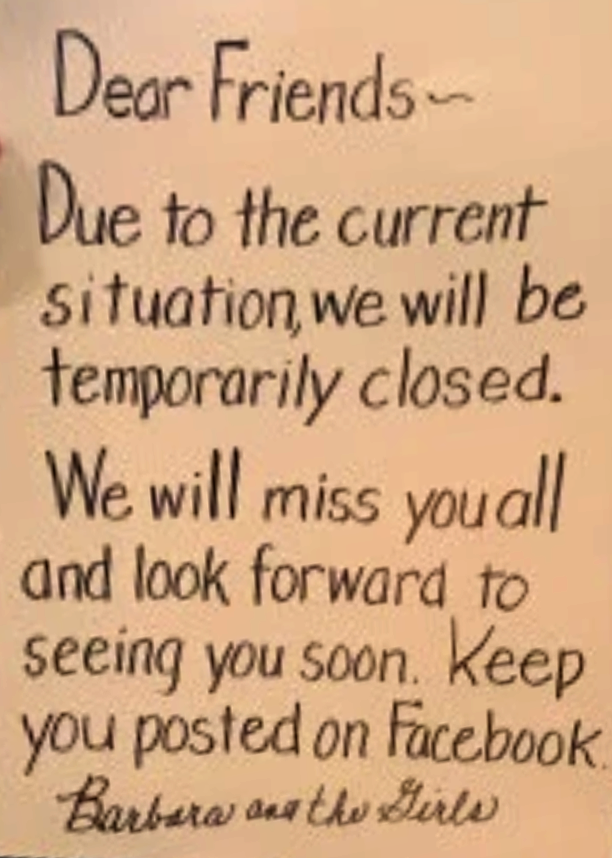 Dear Friends~
Due to the current
situation, we will be
temporarily closed.
We will miss you all
and look forward to
seeing you soon. Keep
you posted on Facebook.
Barbara and the Girls